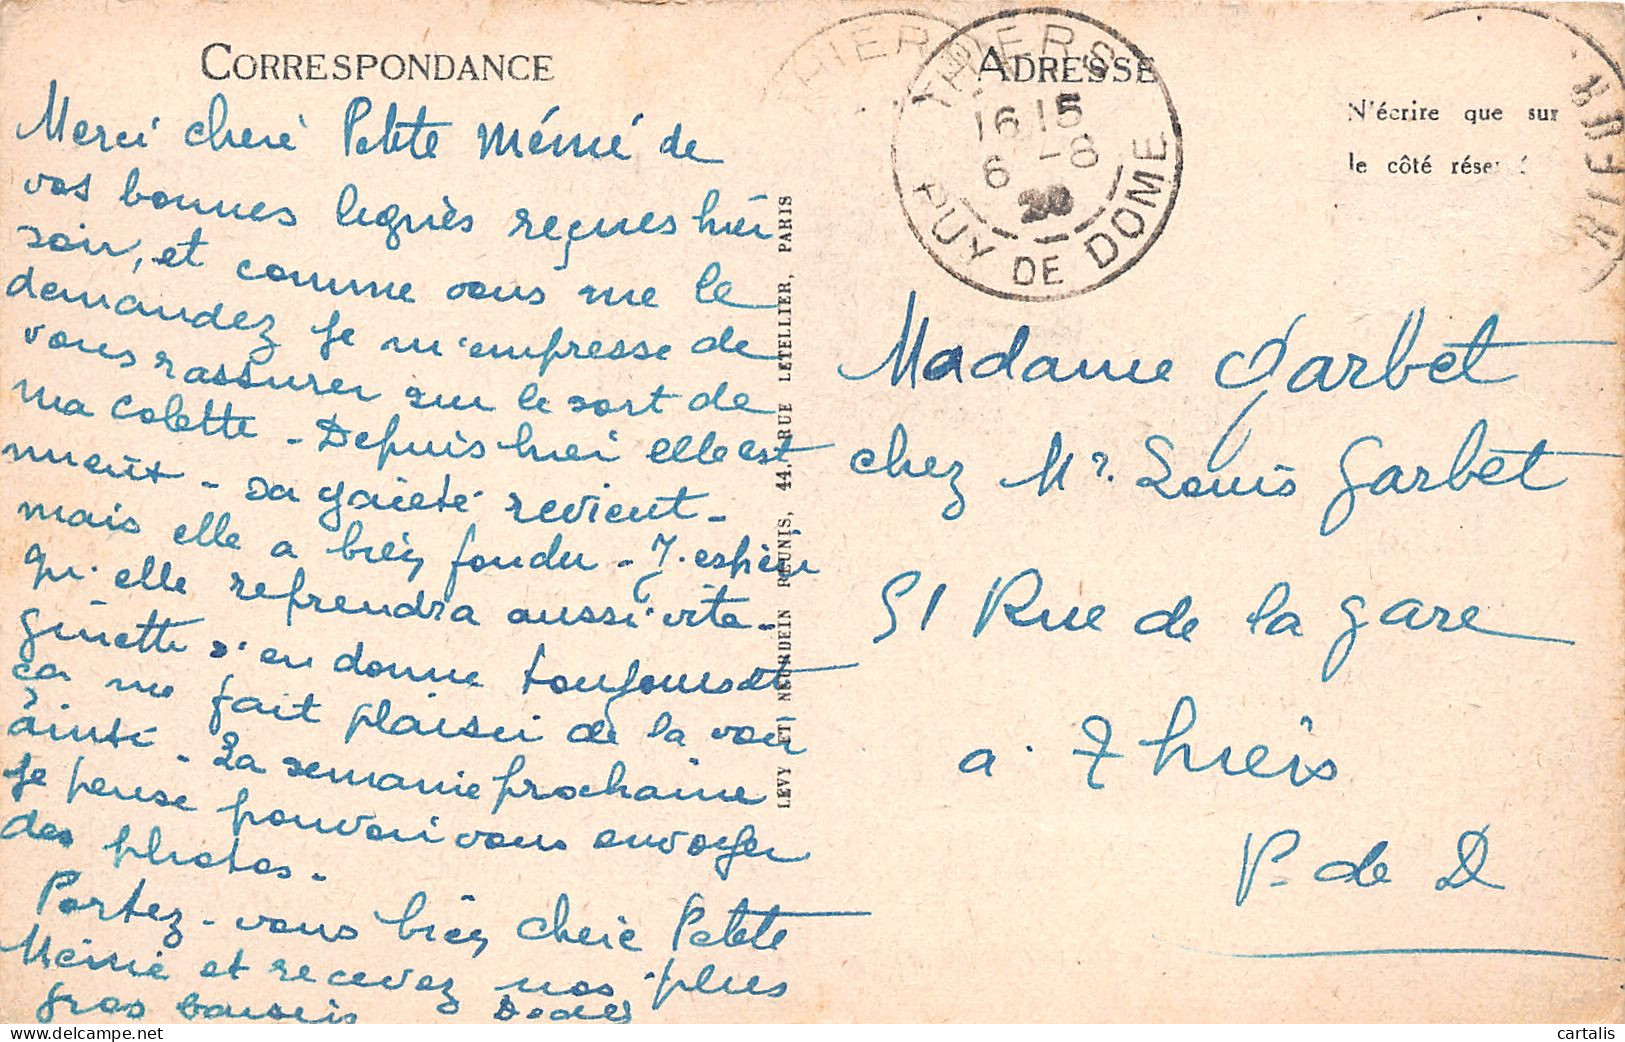 CORRESPONDANCE
Merci cherie Petite Mémé de
vos bonnes lignes reçues hier
soir, et comme vous me le
demandez je m'empresse de
vous rassurer sur le sort de
ma Colette - Depuis hier elle est
mieux - sa gaieté revient -
mais elle a bien fondu - J'espère
qu'elle reprendra aussi vite -
Ginette s'en donne toujours et
ça me fait plaisir de la voir
ainsi - La semaine prochaine
je pense pouvoir vous envoyer
des photos -
Portez-vous bien, cherie Petite
Mémé et recevez nos plus
gros baisers
LEVY ET NEURDEIN REUNIS, 44, RUE LETELLIER, PARIS
ADRESSE
N'écrire que sur
le côté réservé
THIERS
16 15
6 - 8
PUY DE DOME
THIER
Madame Garbet
chez Mr. Louis Garbet
51 Rue de la gare
a Thiers
P. de D
cartalis